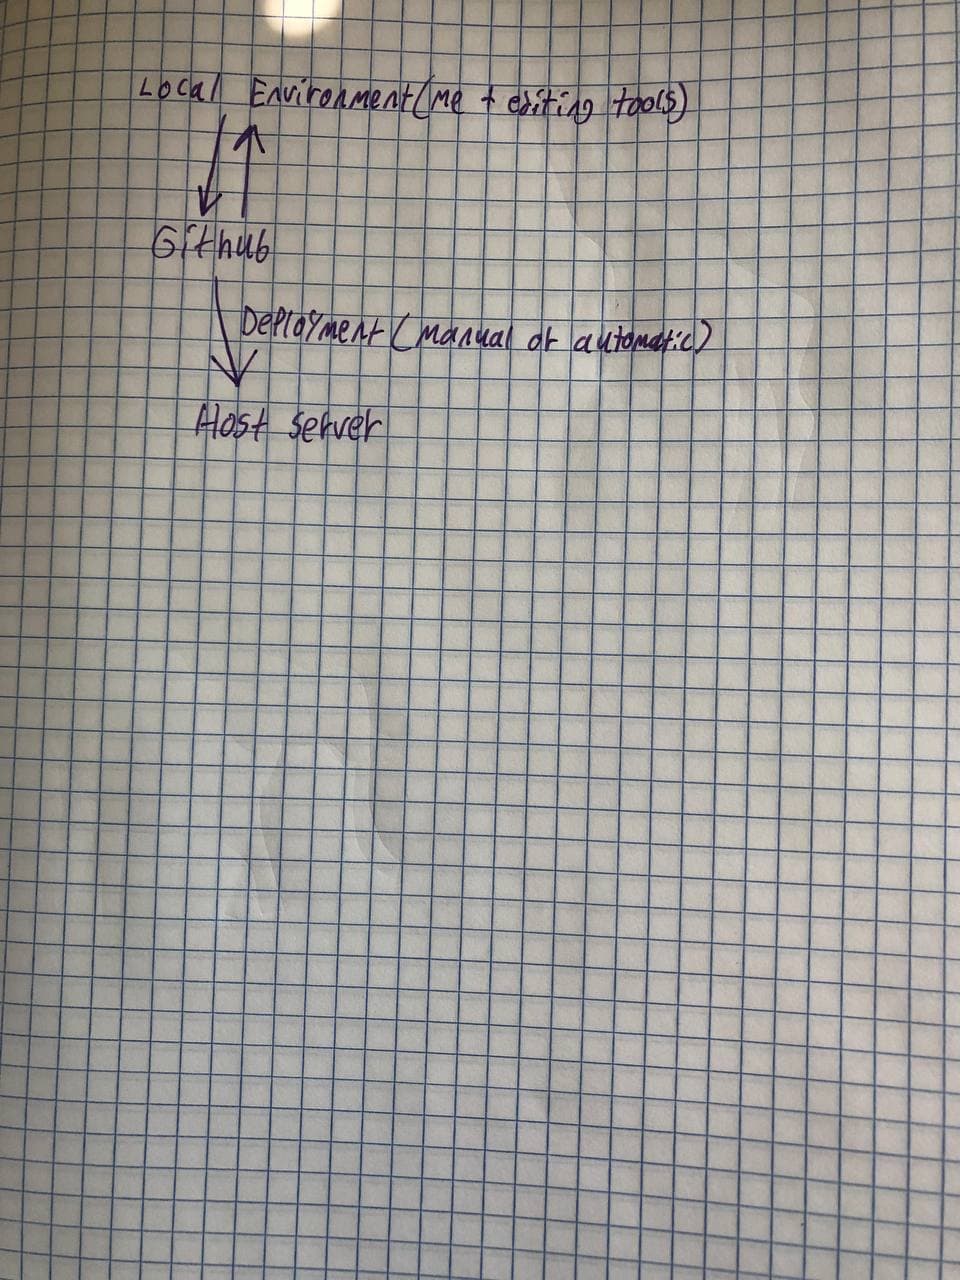 Local Environment (me + editing tools)
Github
Deployment (manual or automatic)
Host server